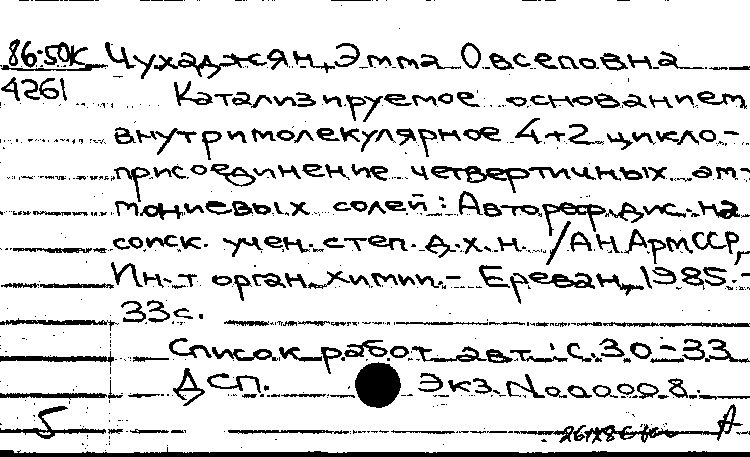 86-50К Чухаджян, Эмма Овсеповна
4261 Катализируемое основанием
внутримолекулярное 4+2 цикло-
присоединение четвертичных ам-
мониевых солей: Автореф. дис. на
соиск. учен. степ. д.х.н. /АН АрмССР,
Ин-т орган. химии. - Ереван, 1985. -
33 с.
Список работ авт.: с. 30-33
ДСП. Экз. № 00008.
5 А